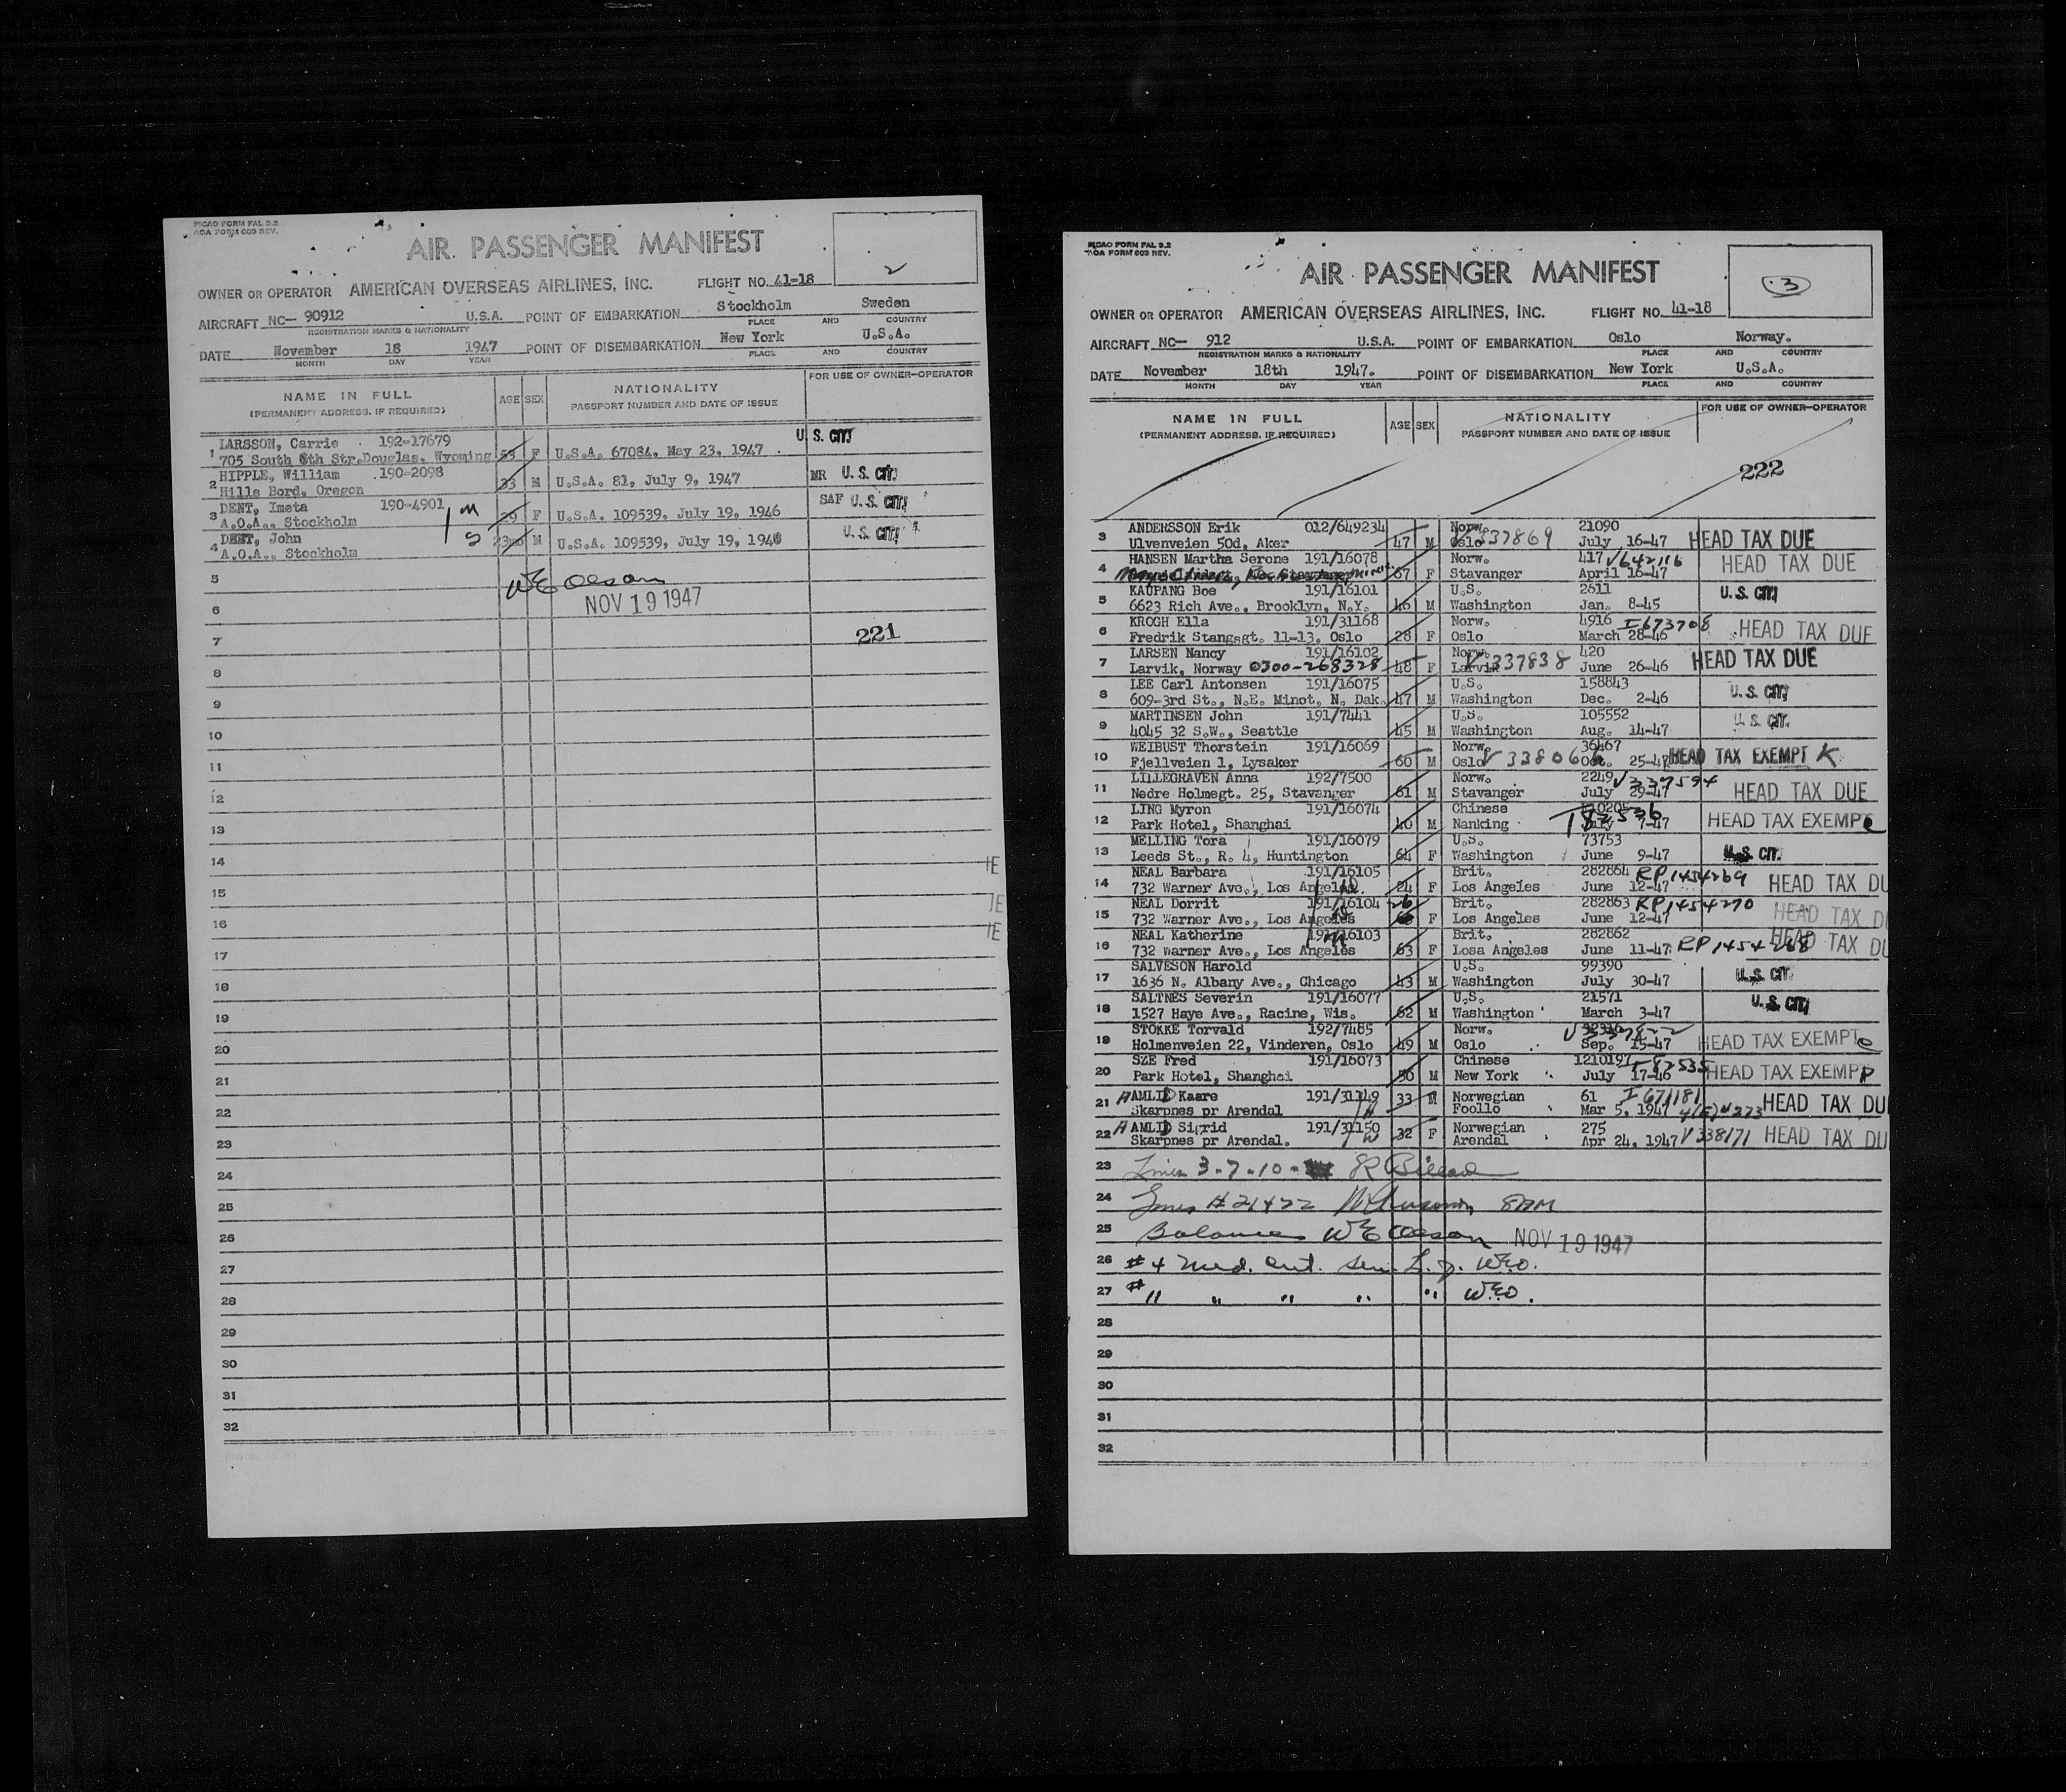 PICAO FORM FAL 3.2
AOA FORM 603 REV.
AIR PASSENGER MANIFEST
2
OWNER OR OPERATOR AMERICAN OVERSEAS AIRLINES, INC. FLIGHT NO. 41-18
AIRCRAFT NC— 90912 U.S.A. POINT OF EMBARKATION Stockholm Sweden
REGISTRATION MARKS & NATIONALITY PLACE AND COUNTRY
DATE November 18 1947 POINT OF DISEMBARKATION New York U.S.A.
MONTH DAY YEAR PLACE AND COUNTRY
NAME IN FULL AGE SEX NATIONALITY FOR USE OF OWNER-OPERATOR
(PERMANENT ADDRESS, IF REQUIRED) PASSPORT NUMBER AND DATE OF ISSUE
LARSSON, Carrie 192-17679 U.S. CIT.
1 705 South 6th Str.Douglas, Wyoming F U.S.A. 67084, May 23, 1947
HIPPLE, William 190-2098
2 Hills Bord, Oregon 33 M U.S.A. 81, July 9, 1947 MR U.S. CIT.
DENT, Imeta 190-4901 M
3 A.O.A., Stockholm 29 F U.S.A. 109539, July 19, 1946 S&F U.S. CIT.
DENT, John S
4 A.O.A., Stockholm M U.S.A. 109539, July 19, 1946 U.S. CIT.
5 WE Olson
6 NOV 19 1947
7 221
8
9
10
11
12
13
14
15
16
17
18
19
20
21
22
23
24
25
26
27
28
29
30
31
32
PICAO FORM FAL 3.2
AOA FORM 603 REV.
AIR PASSENGER MANIFEST
3
OWNER OR OPERATOR AMERICAN OVERSEAS AIRLINES, INC. FLIGHT NO. 41-18
AIRCRAFT NC— 912 U.S.A. POINT OF EMBARKATION Oslo Norway.
REGISTRATION MARKS & NATIONALITY PLACE AND COUNTRY
DATE November 18th 1947. POINT OF DISEMBARKATION New York U.S.A.
MONTH DAY YEAR PLACE AND COUNTRY
NAME IN FULL AGE SEX NATIONALITY FOR USE OF OWNER-OPERATOR
(PERMANENT ADDRESS, IF REQUIRED) PASSPORT NUMBER AND DATE OF ISSUE
222
ANDERSSON Erik 012/649234 Norw. 21090
3 Ulvenveien 50d, Aker 47 M Oslo V337869 July 16-47 HEAD TAX DUE
HANSEN Martha Serone 191/16078 Norw. 417 V642116
4 67 F Stavanger April 16-47 HEAD TAX DUE
KAUPANG Boe 191/16101 U.S. 2611
5 6623 Rich Ave., Brooklyn, N.Y. 46 M Washington Jan. 8-45 U.S. CIT.
KROGH Ella 191/31168 Norw. 4916 I673708
6 Fredrik Stangsgt. 11-13, Oslo 28 F Oslo March 28-46 HEAD TAX DUE
LARSEN Nancy 191/16102 Norw. 420
7 Larvik, Norway 0300-268328 48 F Larvik V337838 June 26-46 HEAD TAX DUE
LEE Carl Antonsen 191/16075 U.S. 158843
8 609-3rd St., N.E. Minot, N. Dak. 47 M Washington Dec. 2-46 U.S. CIT.
MARTINSEN John 191/7441 U.S. 105552
9 4045 32 S.W., Seattle 45 M Washington Aug. 14-47 U.S. CIT.
WEIBUST Thorstein 191/16069 Norw. 36467
10 Fjellveien 1, Lysaker 60 M Oslo 25-47 HEAD TAX EXEMPT K
LILLEGRAVEN Anna 192/7500 Norw. 2249 V337594
11 Nedre Holmegt. 25, Stavanger 61 M Stavanger July 29-47 HEAD TAX DUE
LING Myron 191/16074 Chinese
12 Park Hotel, Shanghai 40 M Nanking July 7-47 HEAD TAX EXEMPT e
MELLING Tora 191/16079 U.S. 73753
13 Leeds St., R. 4, Huntington 64 F Washington June 9-47 U.S. CIT.
NEAL Barbara 191/16105 Brit. 282864 RP1454269
14 732 Warner Ave., Los Angeles 24 F Los Angeles June 12-47 HEAD TAX DU
NEAL Dorrit 191/16104 26 Brit. 282863 RP1454270
15 732 Warner Ave., Los Angeles F Los Angeles June 12-47 HEAD TAX D
NEAL Katherine 191/16103 Brit. 282862
16 732 Warner Ave., Los Angeles 63 F Losa Angeles June 11-47 RP1454268 HEAD TAX DU
SALVESON Harold U.S. 99390
17 1636 N. Albany Ave., Chicago 43 M Washington July 30-47 U.S. CIT.
SALTNES Severin 191/16077 U.S. 21571
18 1527 Haye Ave., Racine, Wis. 62 M Washington March 3-47 U.S. CIT.
STOKKE Torvald 192/7485 Norw.
19 Holmenveien 22, Vinderen, Oslo 49 M Oslo Sep. 15-47 HEAD TAX EXEMPT e
SZE Fred 191/16073 Chinese 1210197
20 Park Hotel, Shanghai 50 M New York July 17-46 HEAD TAX EXEMPT
21 HAMLID Kaare 191/31149 33 M Norwegian 61 I 671181
Skarpnes pr Arendal Foollo Mar 5, 1947 HEAD TAX DU
22 HAMLID Sigrid 191/31150 32 F Norwegian 275
Skarpnes pr Arendal. Arendal Apr 24, 1947 V338171 HEAD TAX DU
23 Lines 3-7-10-
24 Lines #21+22
25 Balance WE Olson NOV 19 1947
26 #4 Med. Cert. Sen. WEO.
27 #11 " " " " WEO.
28
29
30
31
32